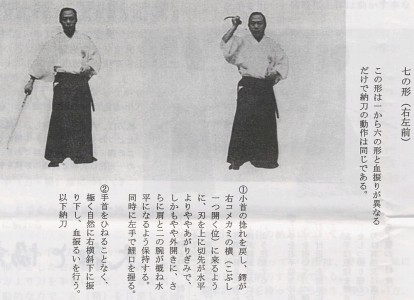 七の形（右左前）
この形は一から六の形と血振りが異なる
だけで納刀の動作は同じである。
①小首の捻れを戻し、鍔が
右コメカミの横（こぶし
一つ開く位）に来るよう
に、刃を上に切先が水平
よりややあがりぎみで、
しかもやや外開きに、さ
らに肩と二の腕が概ね水
平になるよう保持する。
同時に左手で鯉口を握る。
②手首をひねることなく、
極く自然に右横斜下に振
り下し、血振るいを行う。
以下納刀